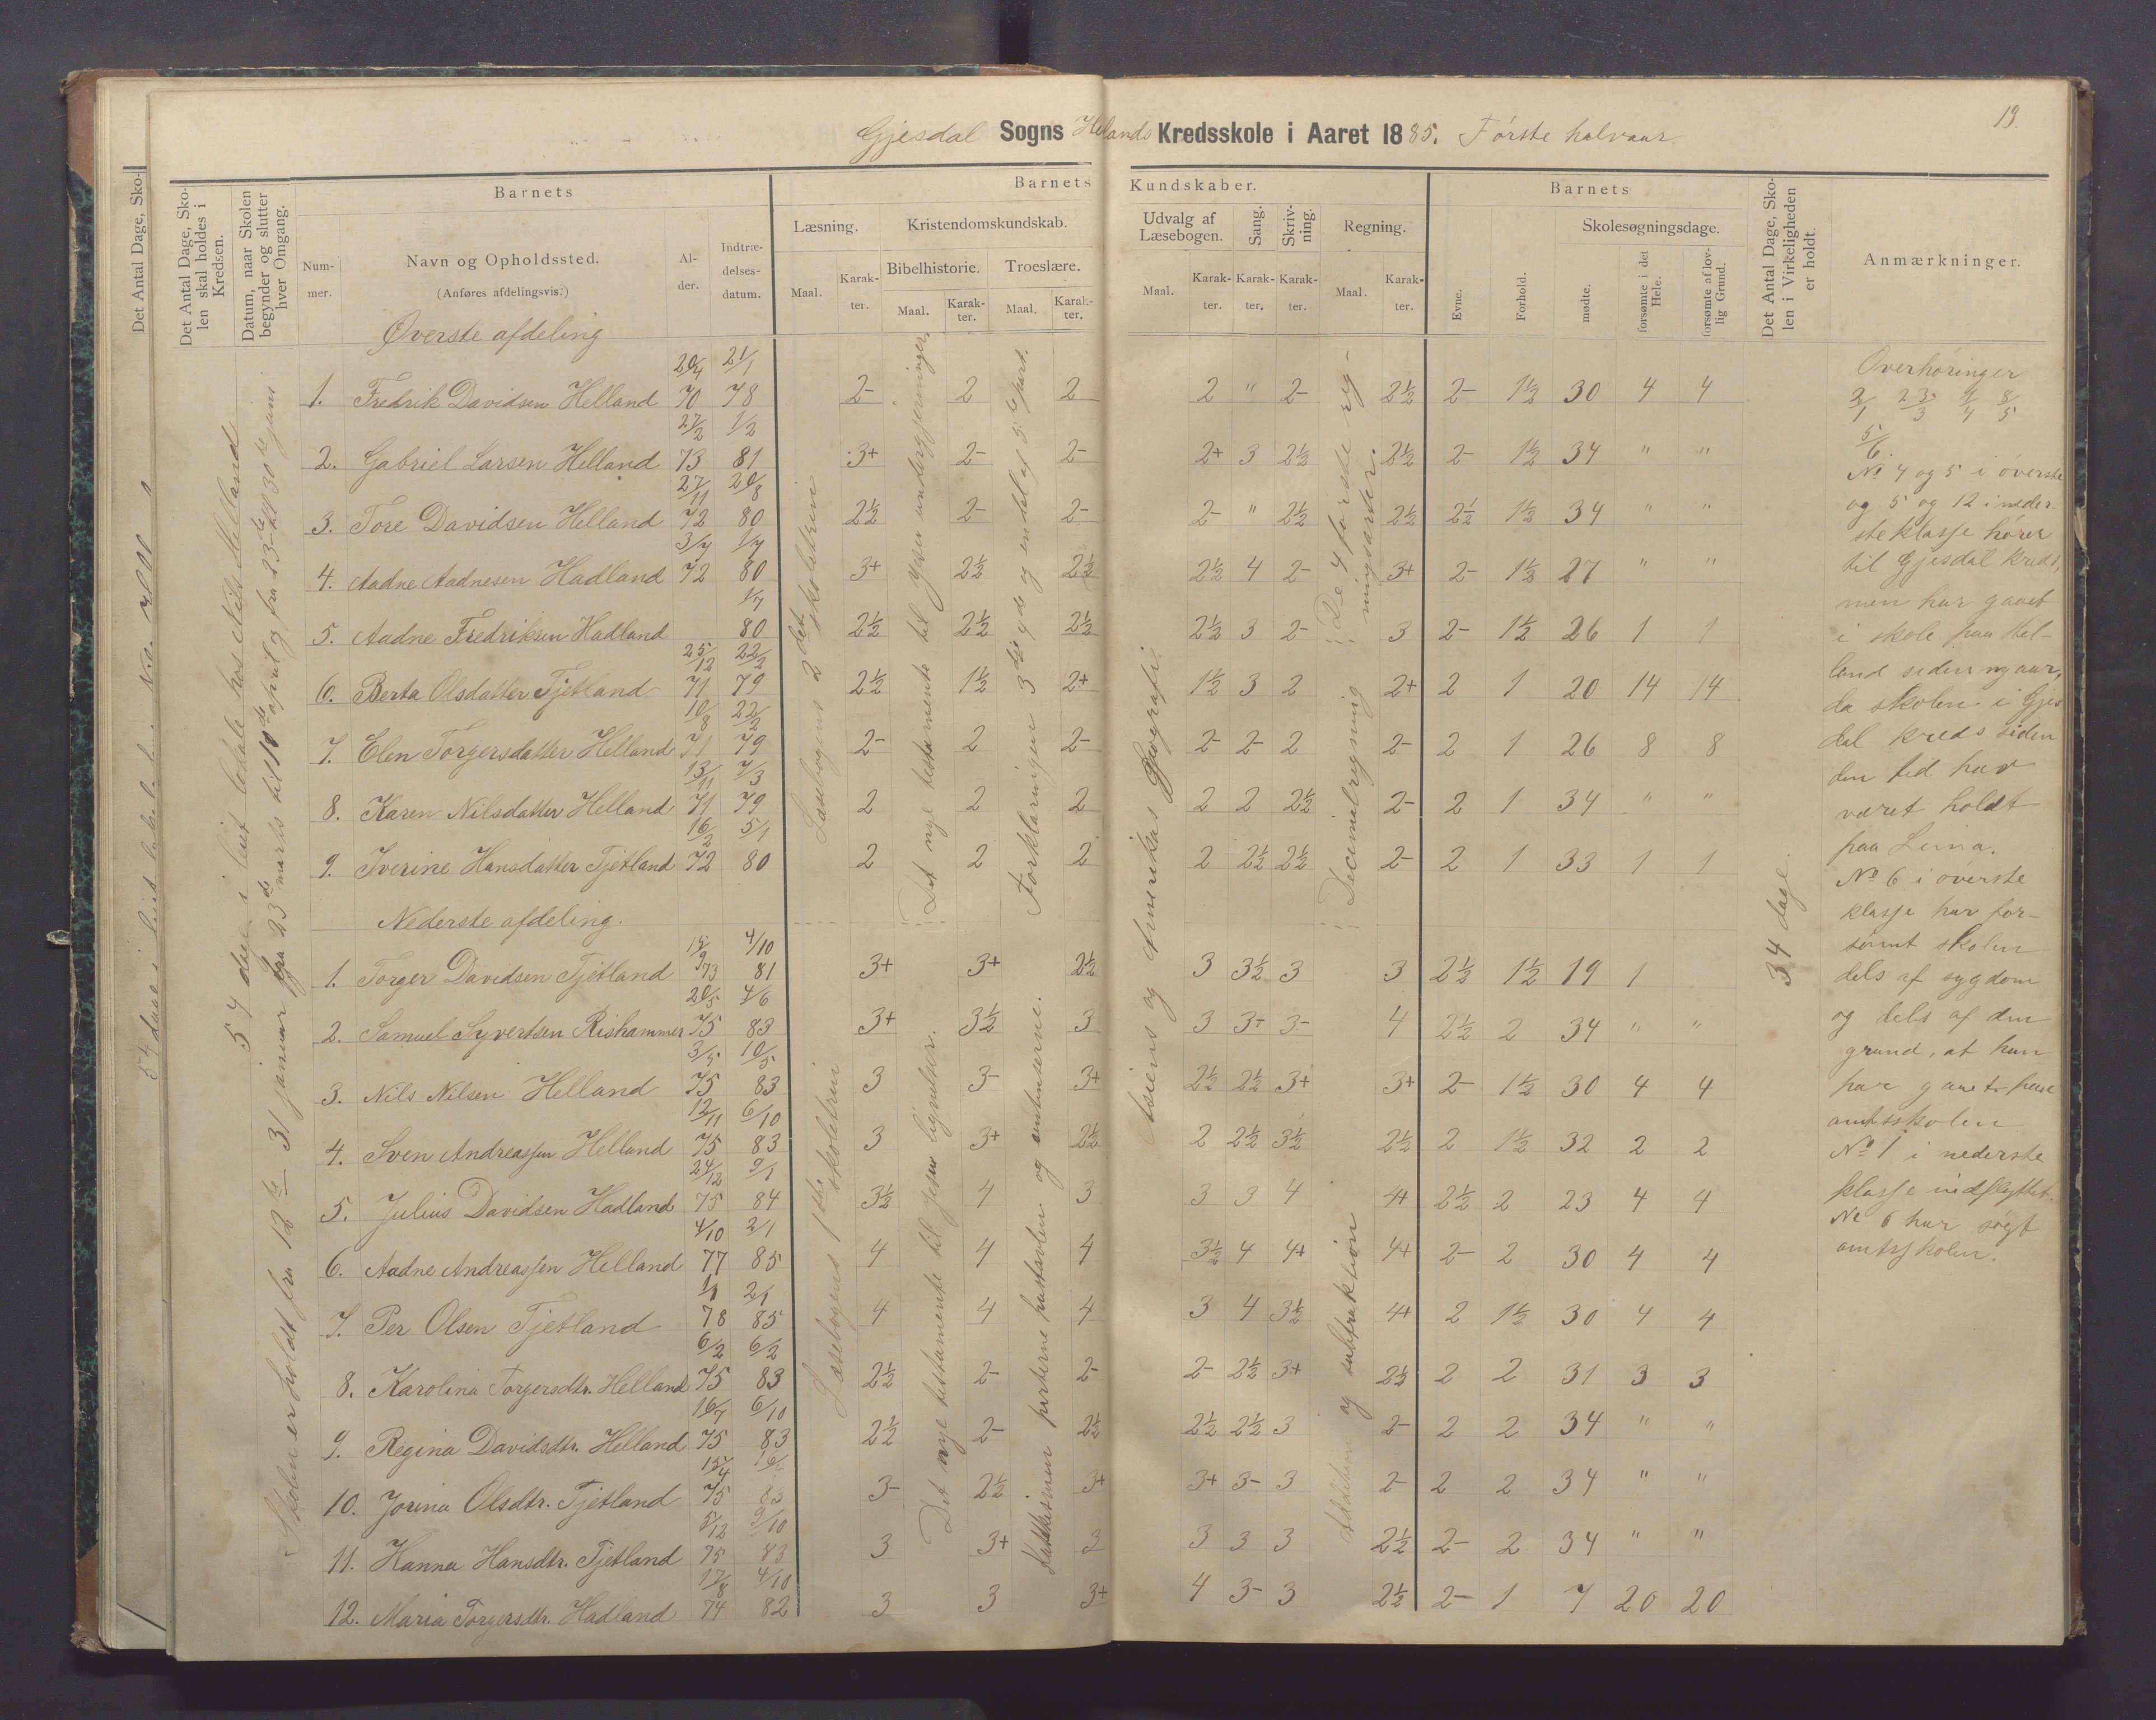 13.
Gjesdal Sogns Hellands Kredsskole i Aaret 1885. Første halvaar.
Det Antal Dage, Sko-
Det Antal Dage, Sko-
len skal holdes i
Kredsen.
Datum, naar Skolen
begynder og slutter
hver Omgang.
Barnets
Num-
mer.
Navn og Opholdssted.
(Anføres afdelingsvis.)
Al-
der.
Indtræ-
delses-
datum.
Barnets Kundskaber.
Læsning.
Maal.
Karak-
ter.
Kristendomskundskab.
Bibelhistorie.
Maal.
Karak-
ter.
Troeslære.
Maal.
Karak-
ter.
Udvalg af
Læsebogen.
Maal.
Karak-
ter.
Sang.
Karak-
ter.
Skriv-
ning.
Karak-
ter.
Regning.
Maal.
Karak-
ter.
Barnets
Evne.
Forhold.
Skolesøgningsdage.
mødte.
forsømte i det
Hele.
forsømte af lov-
lig Grund.
Det Antal Dage, Sko-
len i Virkeligheden
er holdt.
Anmærkninger.
54 dage i leiet lokale hos Nils Helland
Skolen er holdt fra 12te – 31 januar fra 23de marts til 10de april og fra 23de til 30te juni
Øverste afdeling
1. Fredrik Davidsen Helland 20/4 70 21/1 78 2- 2 2 2 " 2- 2½ 2- 1½ 30 4 4
2. Gabriel Larsen Helland 27/2 73 1/2 81 3+ 2- 2- 2+ 3 2½ 2½ 2- 1½ 34 " "
3. Tore Davidsen Helland 27/11 72 20/8 80 2½ 2- 2- 2- " 2½ 2½ 2½ 1½ 34 " "
4. Aadne Aadnesen Hadland 3/7 72 1/7 80 3+ 2½ 2½ 2½ 4 2- 3+ 2- 1½ 27 " "
5. Aadne Fredriksen Hadland 1/7 80 2½ 2½ 2½ 2½ 3 2- 3 2- 1½ 26 1 1
6. Berta Olsdatter Tjetland 25/12 71 22/2 79 2½ 1½ 2+ 1½ 3 2 2+ 2 1 20 14 14
7. Elen Torgersdatter Helland 10/8 71 22/2 79 2- 2 2- 2- 2- 2 2- 2 1 26 8 8
8. Karen Nilsdatter Helland 13/11 71 7/3 79 2 2 2 2 2 2½ 2- 2 1 34 " "
9. Iverine Hansdatter Tjetland 16/2 72 5/1 80 2 2 2 2 2½ 2½ 2- 2 1 33 1 1
Nederste afdeling.
1. Torger Davidsen Tjetland 15/9 73 4/10 81 3+ 3+ 2½ 3 3½ 3 3 2½ 1½ 19 1
2. Samuel Syvertsen Rishammer 20/5 75 4/6 83 3+ 3½ 3 3 3+ 3- 4 2½ 2 34 " "
3. Nils Nilsen Helland 3/5 75 10/5 83 3 3- 3+ 2½ 2½ 3+ 3+ 2- 1½ 30 4 4
4. Sven Andreassen Helland 12/11 75 6/10 83 3 3+ 2½ 2 2½ 3½ 2½ 2 1½ 32 2 2
5. Julius Davidsen Hadland 24/12 75 9/1 84 3½ 4 3 3 3 4 4+ 2½ 2 23 4 4
6. Aadne Andreassen Helland 4/10 77 2/1 85 4 4 4 3½ 4 4+ 4+ 2- 2 30 4 4
7. Per Olsen Tjetland 1/1 78 2/1 85 4 4 4 3 4 3½ 4+ 2 1½ 30 4 4
8. Karolina Torgersdtr. Helland 6/2 75 6/2 83 2½ 2- 2- 2- 2½ 3+ 2½ 2 2 31 3 3
9. Regina Davidsdtr. Helland 16/7 75 6/10 83 2½ 2- 2½ 2½ 2½ 3 2- 2 2 34 " "
10. Jorina Olsdtr. Tjetland 15/4 75 83 3- 2½ 3+ 3+ 3- 3 2- 2 2 34 " "
11. Hanna Hansdtr. Tjetland 5/12 75 9/10 83 3 3+ 3 3 3 3 2½ 2- 2 34 " "
12. Maria Torgersdtr. Hadland 17/8 74 4/10 82 3 3 3+ 4 3- 3 2½ 2- 1 7 20 20
Læsebogens 2det skoletrin
Det nye testamente til Jesu undergjerninger
Forklaringen 3die 4de og en del af 5te part.
Læsebogens 1ste skoletrin
Det nye testamente til Jesu lignelser.
Katekismen parterne hustavlen og
Asiens og Amerikas Geografi.
De 4 første reg-
ningsarter.
Decimalregning
Addition og subtraktion
34 dage.
Overhøringer
2/1 23/3 9/4 8/5
5/6.
No 4 og 5 i øverste
og 5 og 12 i neder-
ste klasse hører
til Gjesdal kreds,
men har gaaet
i skole paa Hel-
land siden nyaar,
da skolen i Gjes
dal kreds siden
den tid har
været holdt
paa Lima.
No 6 i øverste
klasse har for-
sømt skolen
dels af sygdom
og dels af den
grund, at hun
har gaaet paa
amtsskolen
No 1 i nederste
klasse indflyttet.
No 6 har søgt
amtsskolen.